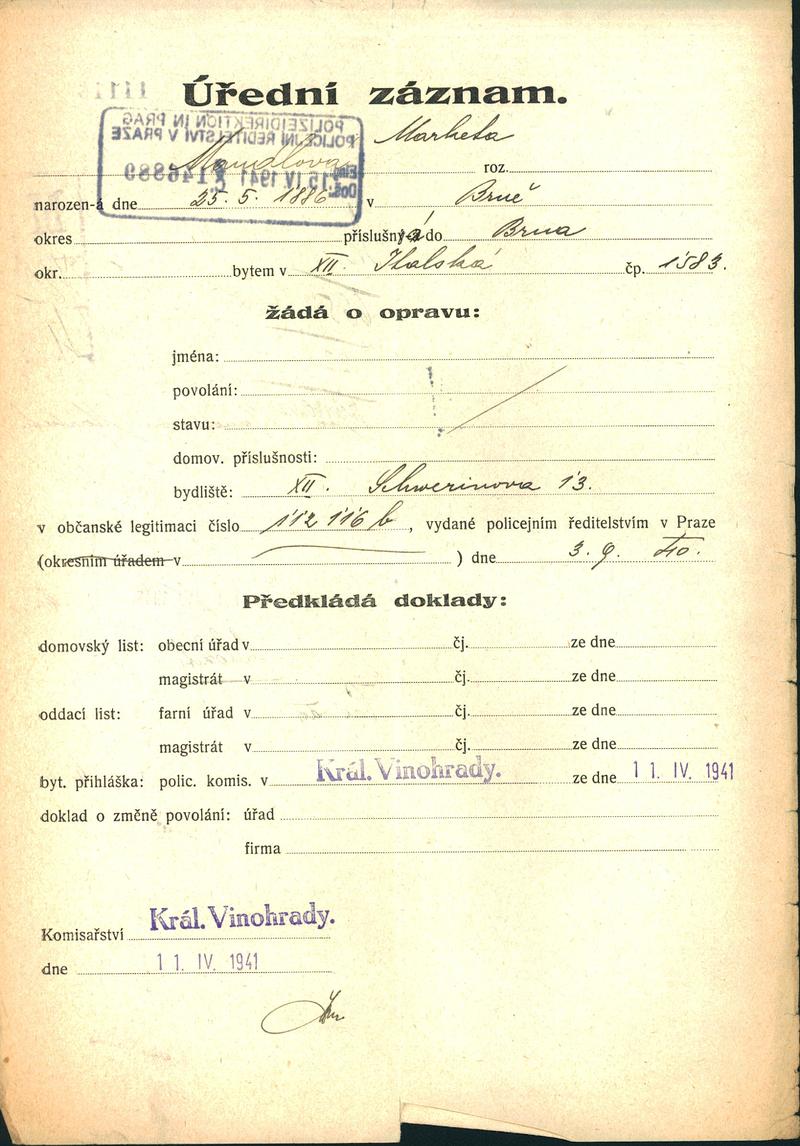 Úřední záznam.
POLIZEIDIREKTION IN PRAG
POLICEJNÍ ŘEDITELSTVÍ V PRAZE
Markéta
Mandlova roz.
15. IV 1941
narozen-á dne 25. 5. 1886 v Brně
okres příslušný-á do Brna
okr. bytem v XII. Italská čp. 1583.
žádá o opravu:
jména:
povolání:
stavu:
domov. příslušnosti:
bydliště: XII. Schwerinova 13.
v občanské legitimaci číslo 112 116 b, vydané policejním ředitelstvím v Praze
(okresním úřadem v ) dne 3. 9. 40.
Předkládá doklady:
domovský list: obecní úřad v čj. ze dne
magistrát v čj. ze dne
oddací list: farní úřad v čj. ze dne
magistrát v čj. ze dne
byt. přihláška: polic. komis. v Král. Vinohrady. ze dne 11. IV. 1941
doklad o změně povolání: úřad
firma
Komisařství Král. Vinohrady.
dne 11. IV. 1941